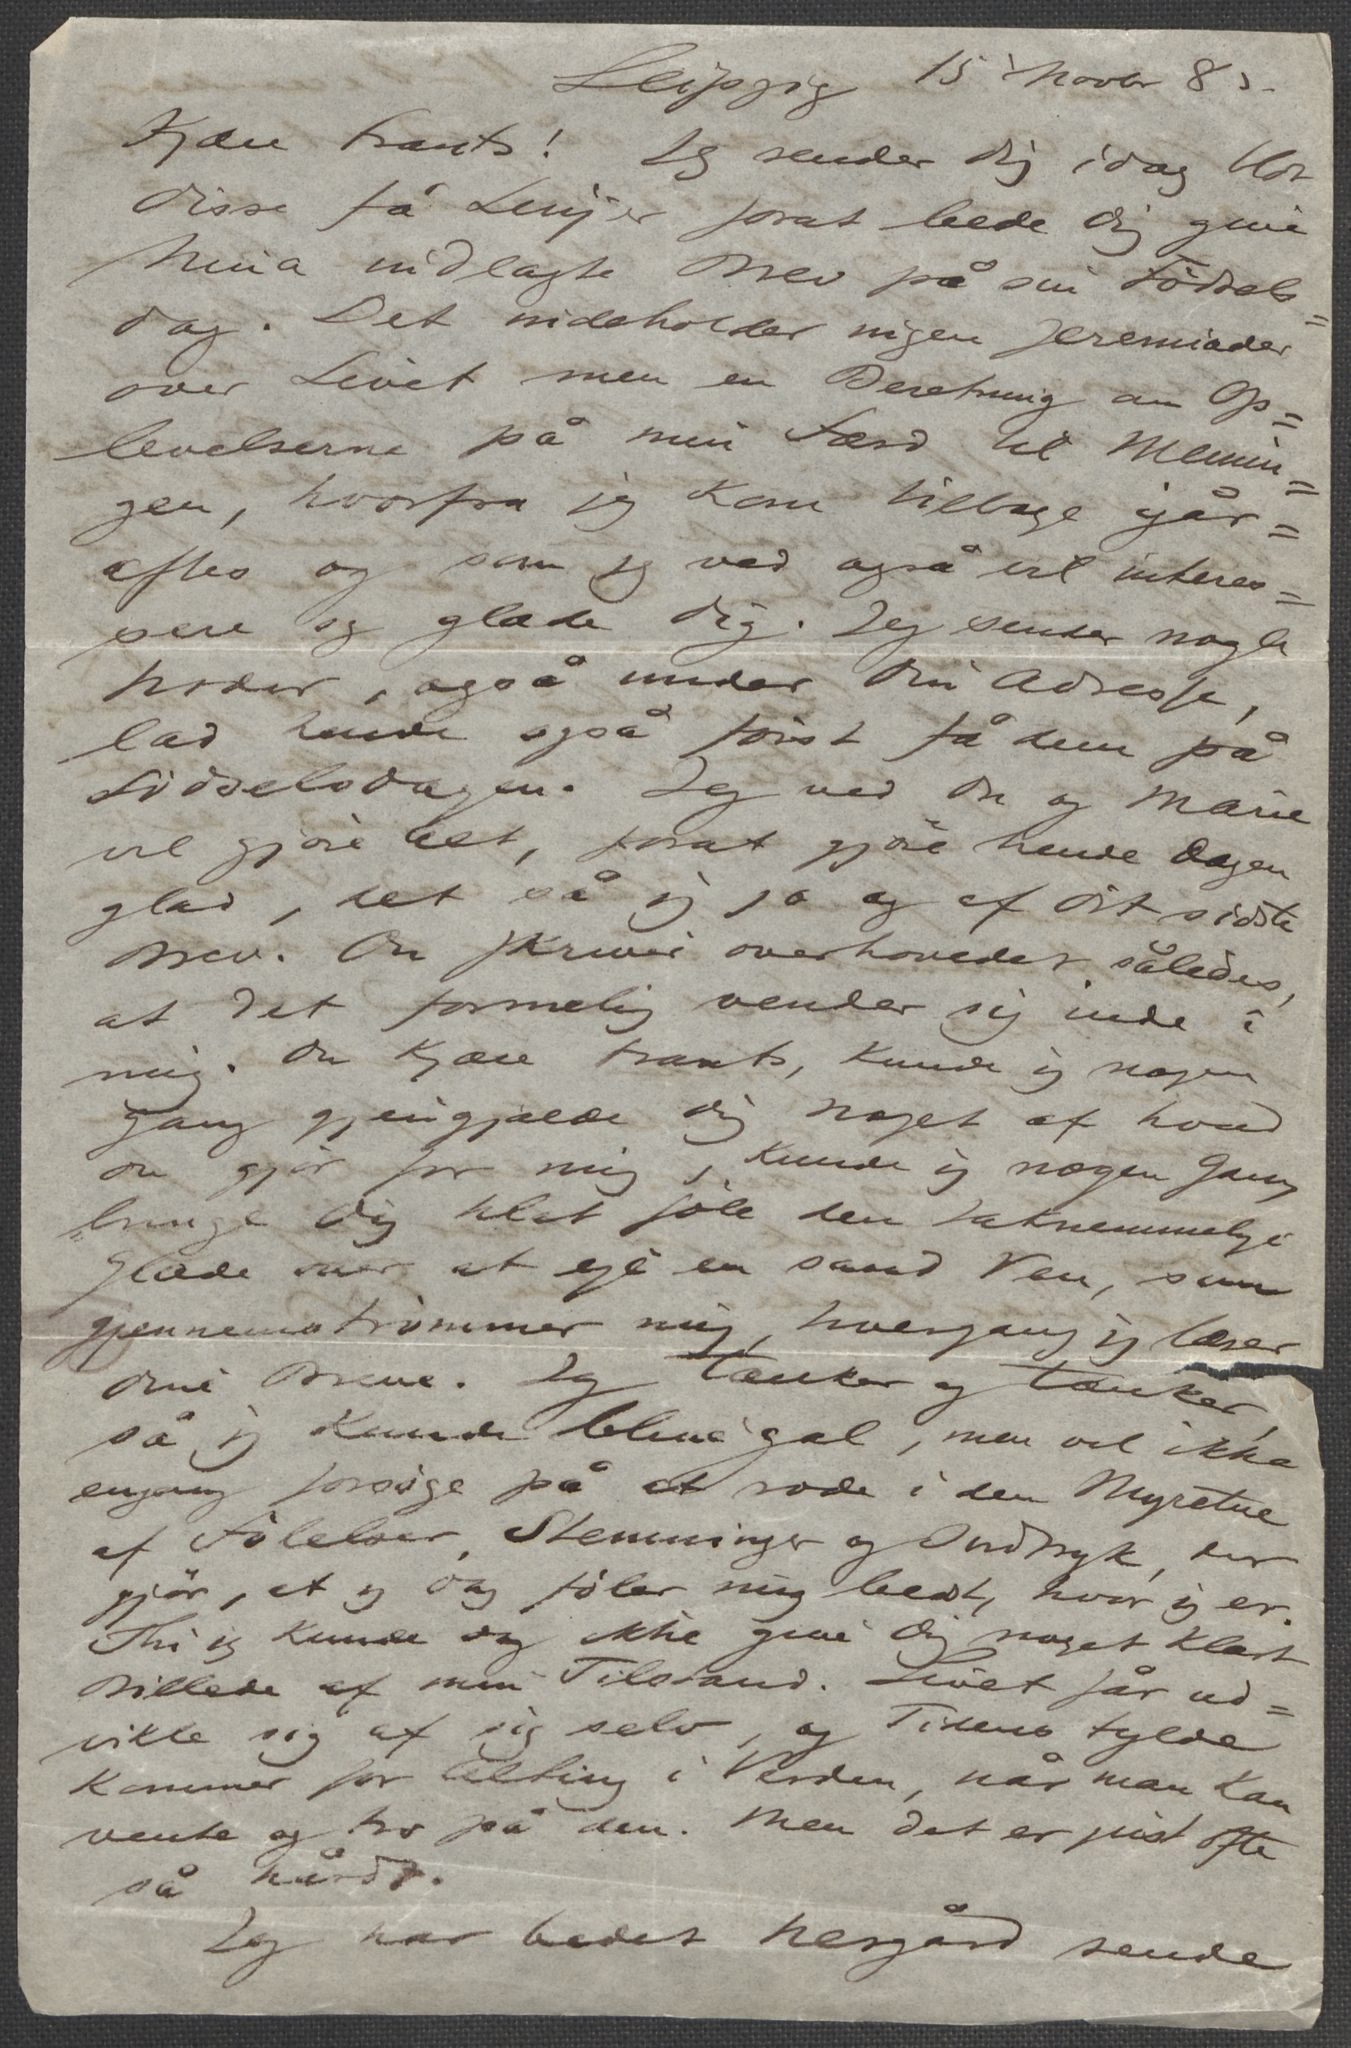 Leipzig 15 Novbr 83.
Kjære Frants! Jeg sender dig idag blot
disse få Linjer forat bede dig give
Nina indlagte Brev på sin Födsels=
dag. Det indeholder ingen Jeremiader
over Livet men en Beretning om Op=
levelserne på min Færd til Meinin=
gen, hvorfra jeg kom tilbage igår=
aftes og som jeg ved også vil interes=
sere og glæde dig. Jeg sender nogle
Noder, også under din Adresse,
lad hende også först få dem på
Födselsdagen. Jeg ved du og Marie
vil gjöre det, forat gjöre hende Dagen
glad, det så jeg jo og af dit sidste
Brev. Du skriver overhovedet således,
at det formelig vender sig inde i
mig. Du kjære Frants, kunde jeg nogen
Gang gjengjælde dig noget af hvad
du gjör for mig, kunde jeg nogen Gang
bringe dig til at föle den taknemmelige
Glæde over at eje en sand Ven, som
gjennemströmmer mig, hvergang jeg læser
dine Breve. Jeg tænker og tænker,
så jeg kunde blive gal, men vil ikke
engang forsöge på at rode i den Myretue
af Fölelser, Stemninger og Indtryk, der
gjör, at jeg dog föler mig bedst, hvor jeg er.
Thi jeg kunde dog ikke give dig noget klart
Billede af min Tilstand. Livet får ud=
vikle sig af sig selv, og Tidens Fylde
kommer for Alting i Verden, når man kan
vente og tro på den. Men det er just ofte
så hårdt.
Jeg har bedet Neergård sende